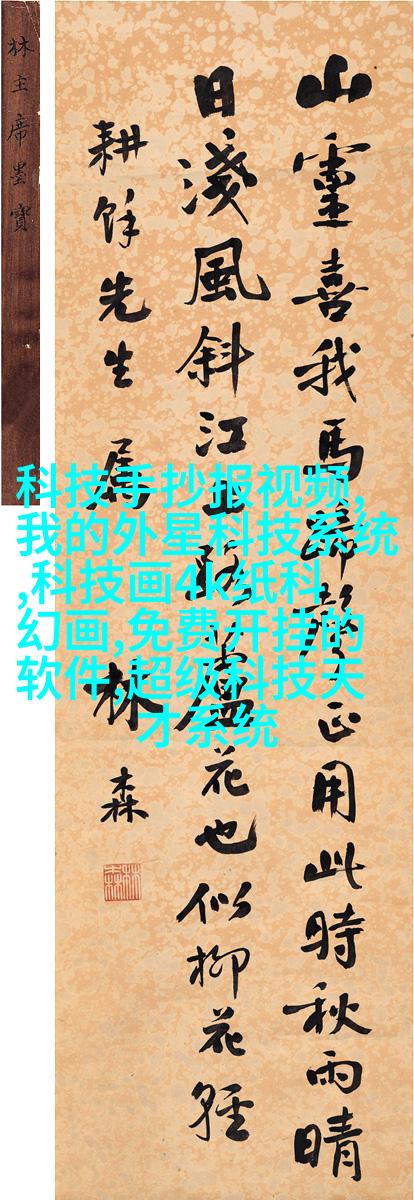 山靈喜我馬蹄聲正用此時秋雨晴
日淺風斜江上路蘆花也似柳花輕
耕餘先生屬
林森
林主席墨寶
科技手抄报视频,
我的外星科技系统
,科技画4k纸科
幻画,免费开挂的
软件,超级科技天
才系统